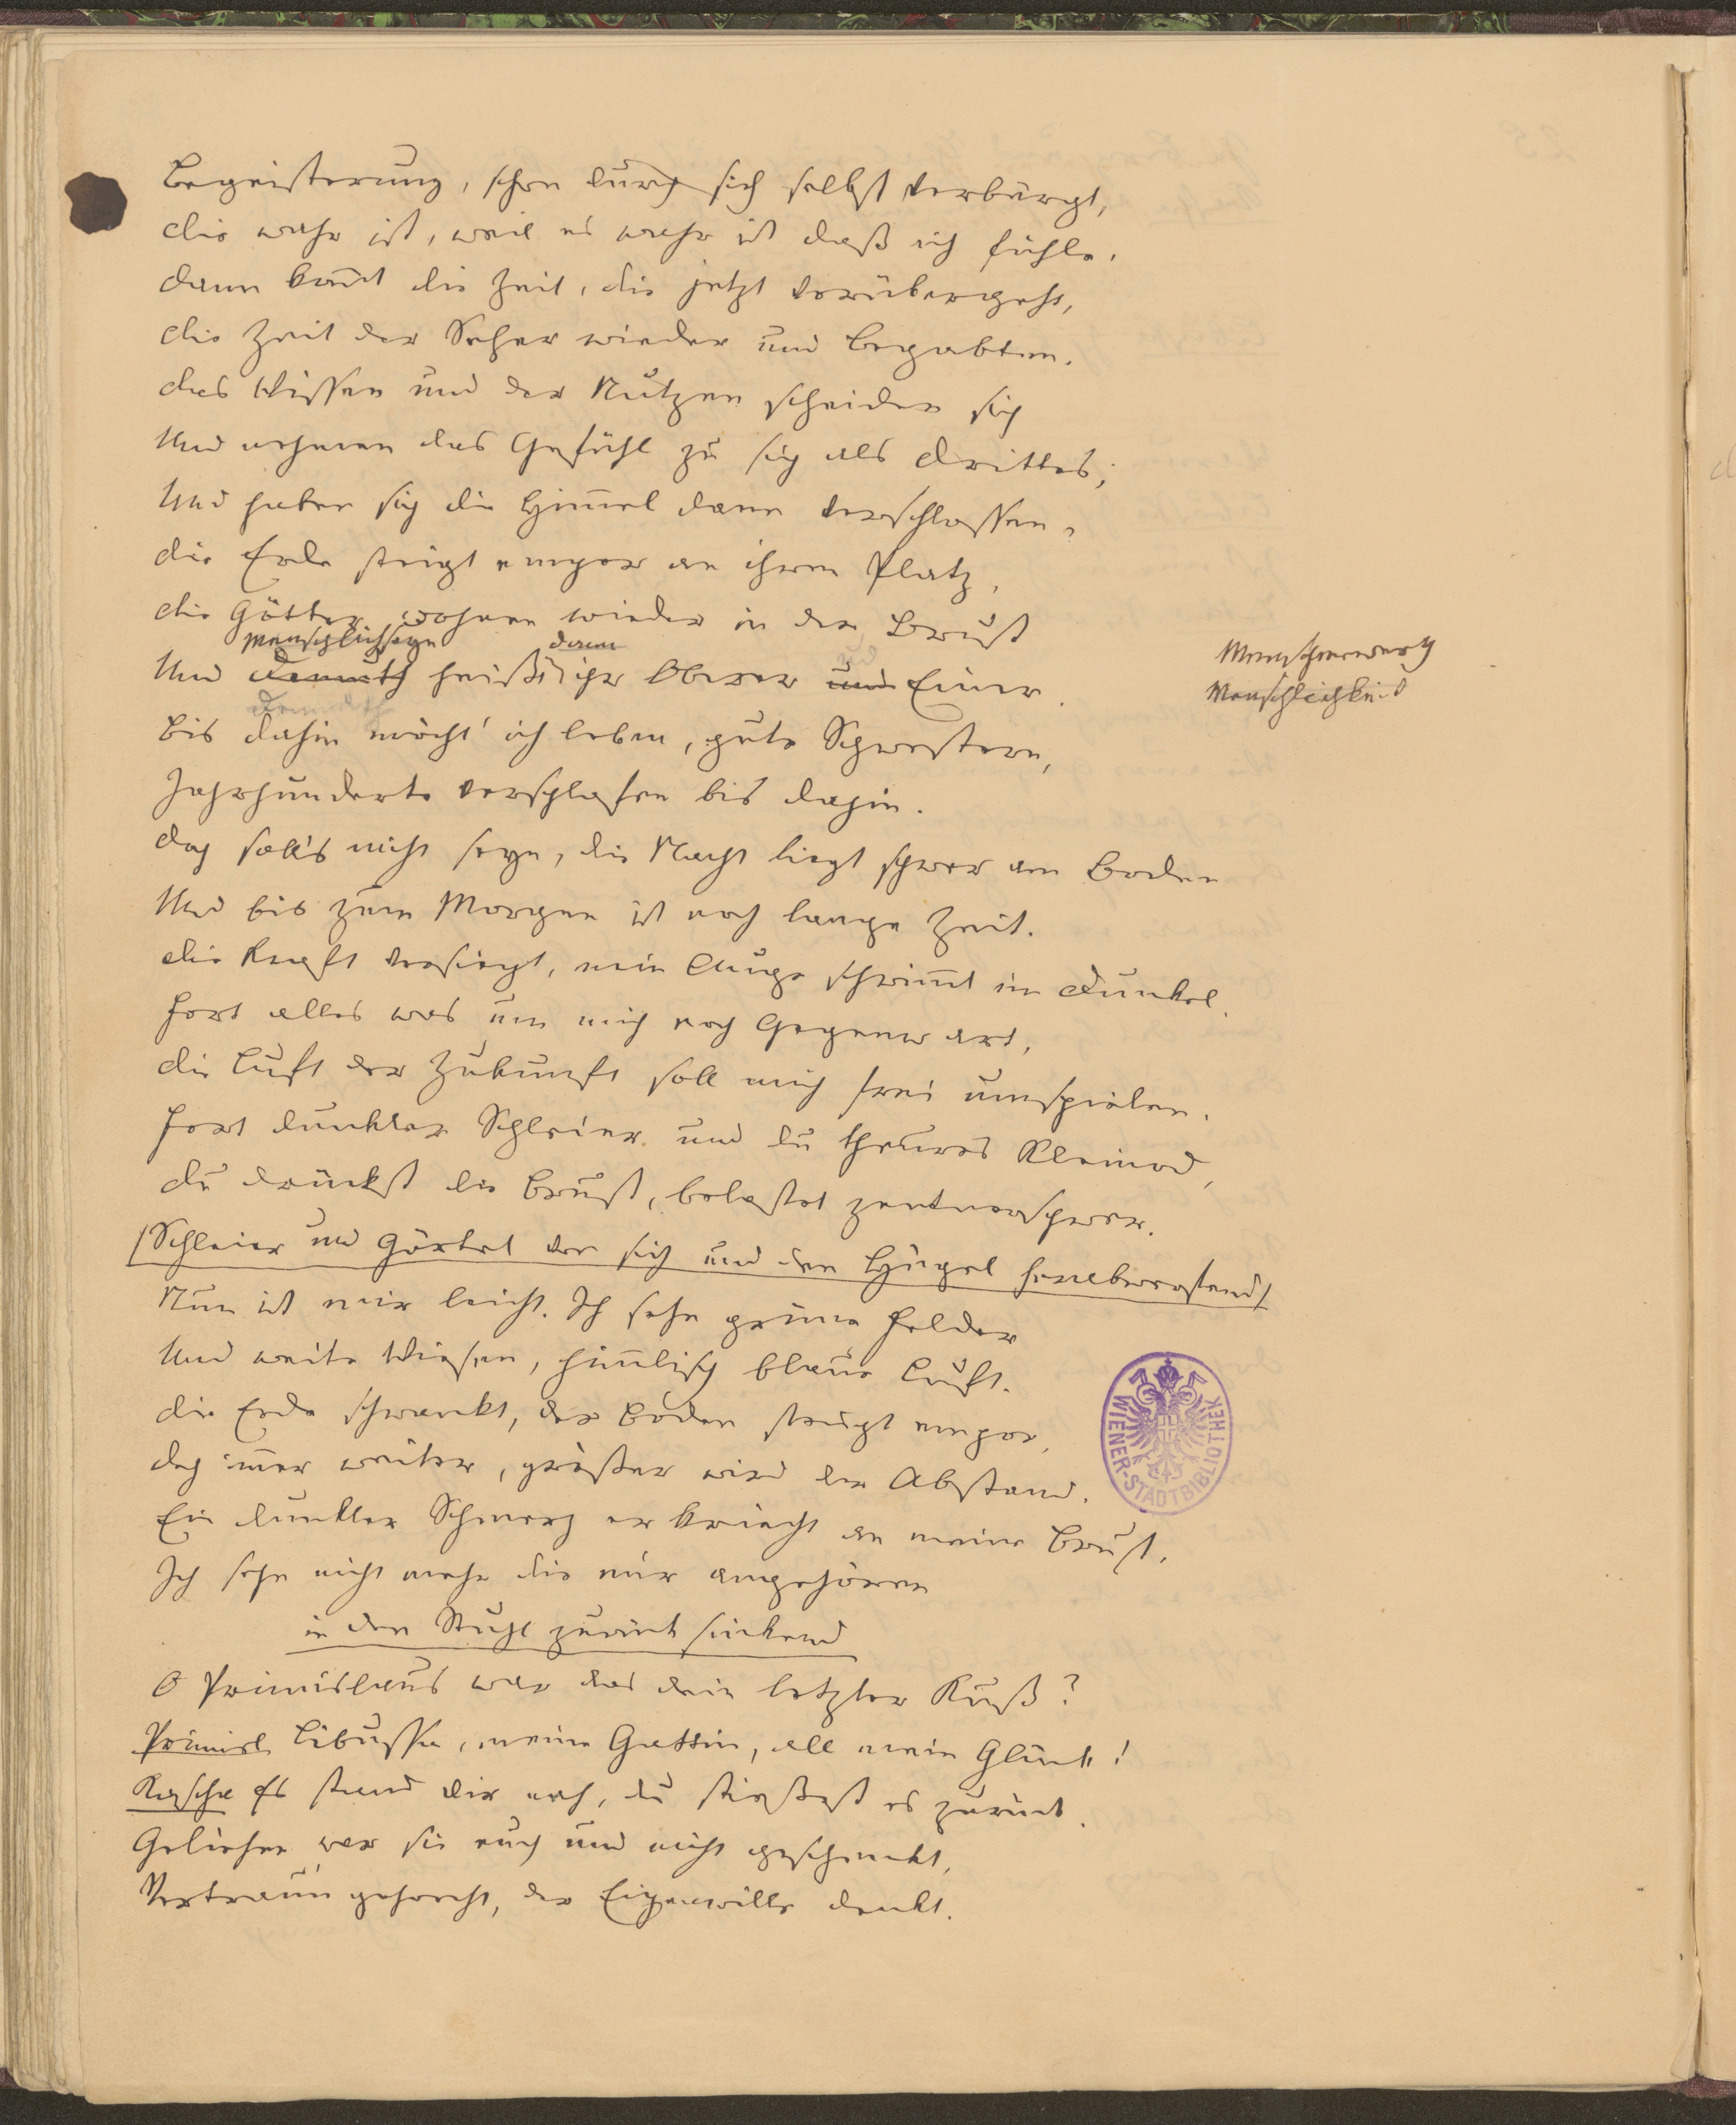 Begeisterung, schon durch sich selbst verbürgt,
die wahr ist, weil es wahr ist daß ich fühle.
dann kom̄t die Zeit, die jetzt vorübergeht,
die Zeit der Seher wieder und Begabten.
das Wissen und der Nutzen scheiden sich
Und nehmen das Gefühl zu sich als drittes;
Und haben sich die Him̄el dann verschlossen,
die Erde steigt empor an ihren Platz,
die Götter wohnen wieder in der Brust
Menschlichseyn dann
Und Demuth heißt ihr Oberer und Einer.
Menschenwerth
Menschlichkeit
Demuth
Bis dahin möcht' ich leben, gute Schwestern,
Jahrhunderte verschlafen bis dahin.
doch soll's nicht seyn, die Nacht liegt schwer am Boden
Und bis zum Morgen ist noch lange Zeit.
die Kraft versiegt, mein Auge schwim̄t im Dunkel.
Fort alles was um mich noch Gegenwart,
die Luft der Zukunft soll mich frei umspielen.
Fort dunkler Schleier und du theures Kleinod,
du drückst die Brust, belastet zentnerschwer.
/Schleier und Gürtel vor sich und den Hügel herabwerfend/
Nun ist mir leicht. Ich sehe grüne Felder
Und weite Wiesen, him̄lisch blaue Luft.
die Erde schwankt, der Boden steigt empor,
doch im̄er weiter, größer wird der Abstand.
Ein dunkler Schmerz er kriecht an meine Brust,
Ich sehe nicht mehr die mir angehören
in den Stuhl zurück sinkend
O Primislaus war das dein letzter Kuß?
Primisl Libussa, meine Gattin, all mein Glück!
Kascha Es stand dir nah, du stießest es zurück.
Geliehen war sie euch und nicht geschenkt,
Vertrau'n gehorcht, der Eigenwille denkt.
WIENER-STADTBIBLIOTHEK